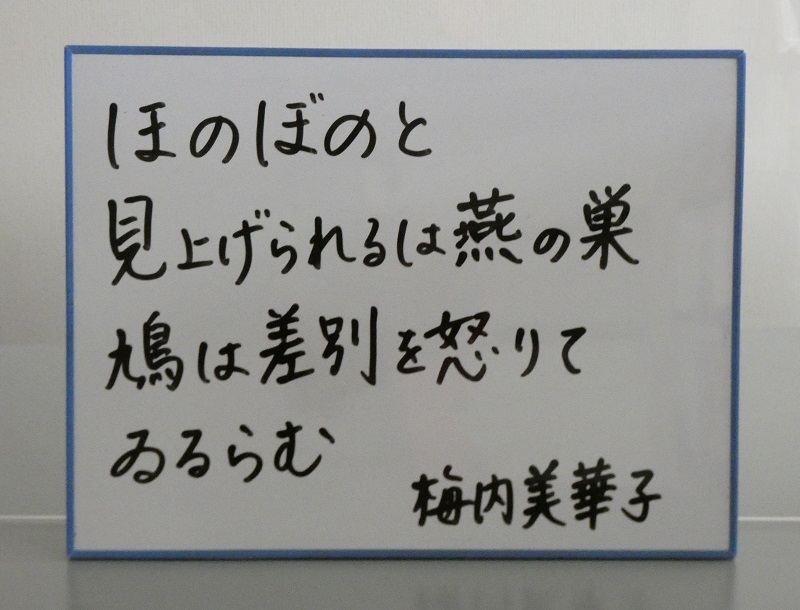 ほのぼのと
見上げられるは燕の巣
鳩は差別を怒りて
ゐるらむ
梅内美華子